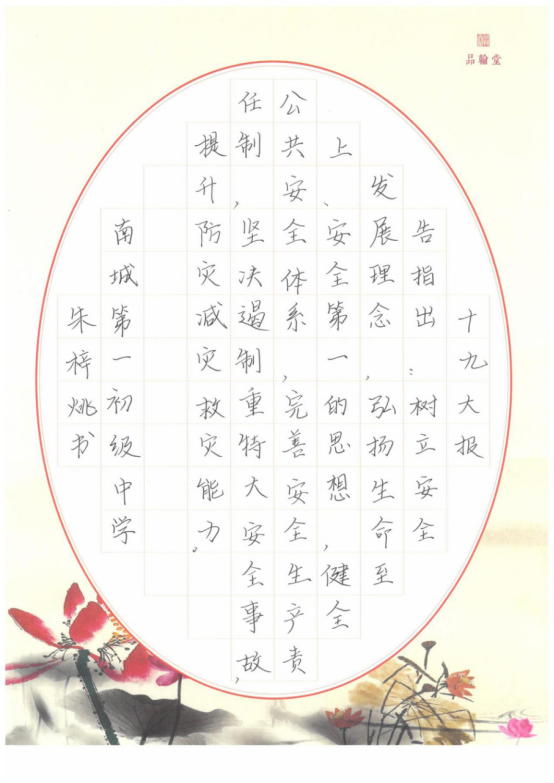 品翰堂
十九大报
告指出:树立安全
发展理念,弘扬生命至
上、安全第一的思想,健全
公共安全体系,完善安全生产责
任制,坚决遏制重特大安全事故,
提升防灾减灾救灾能力。
南城第一初级中学
朱梓姚书